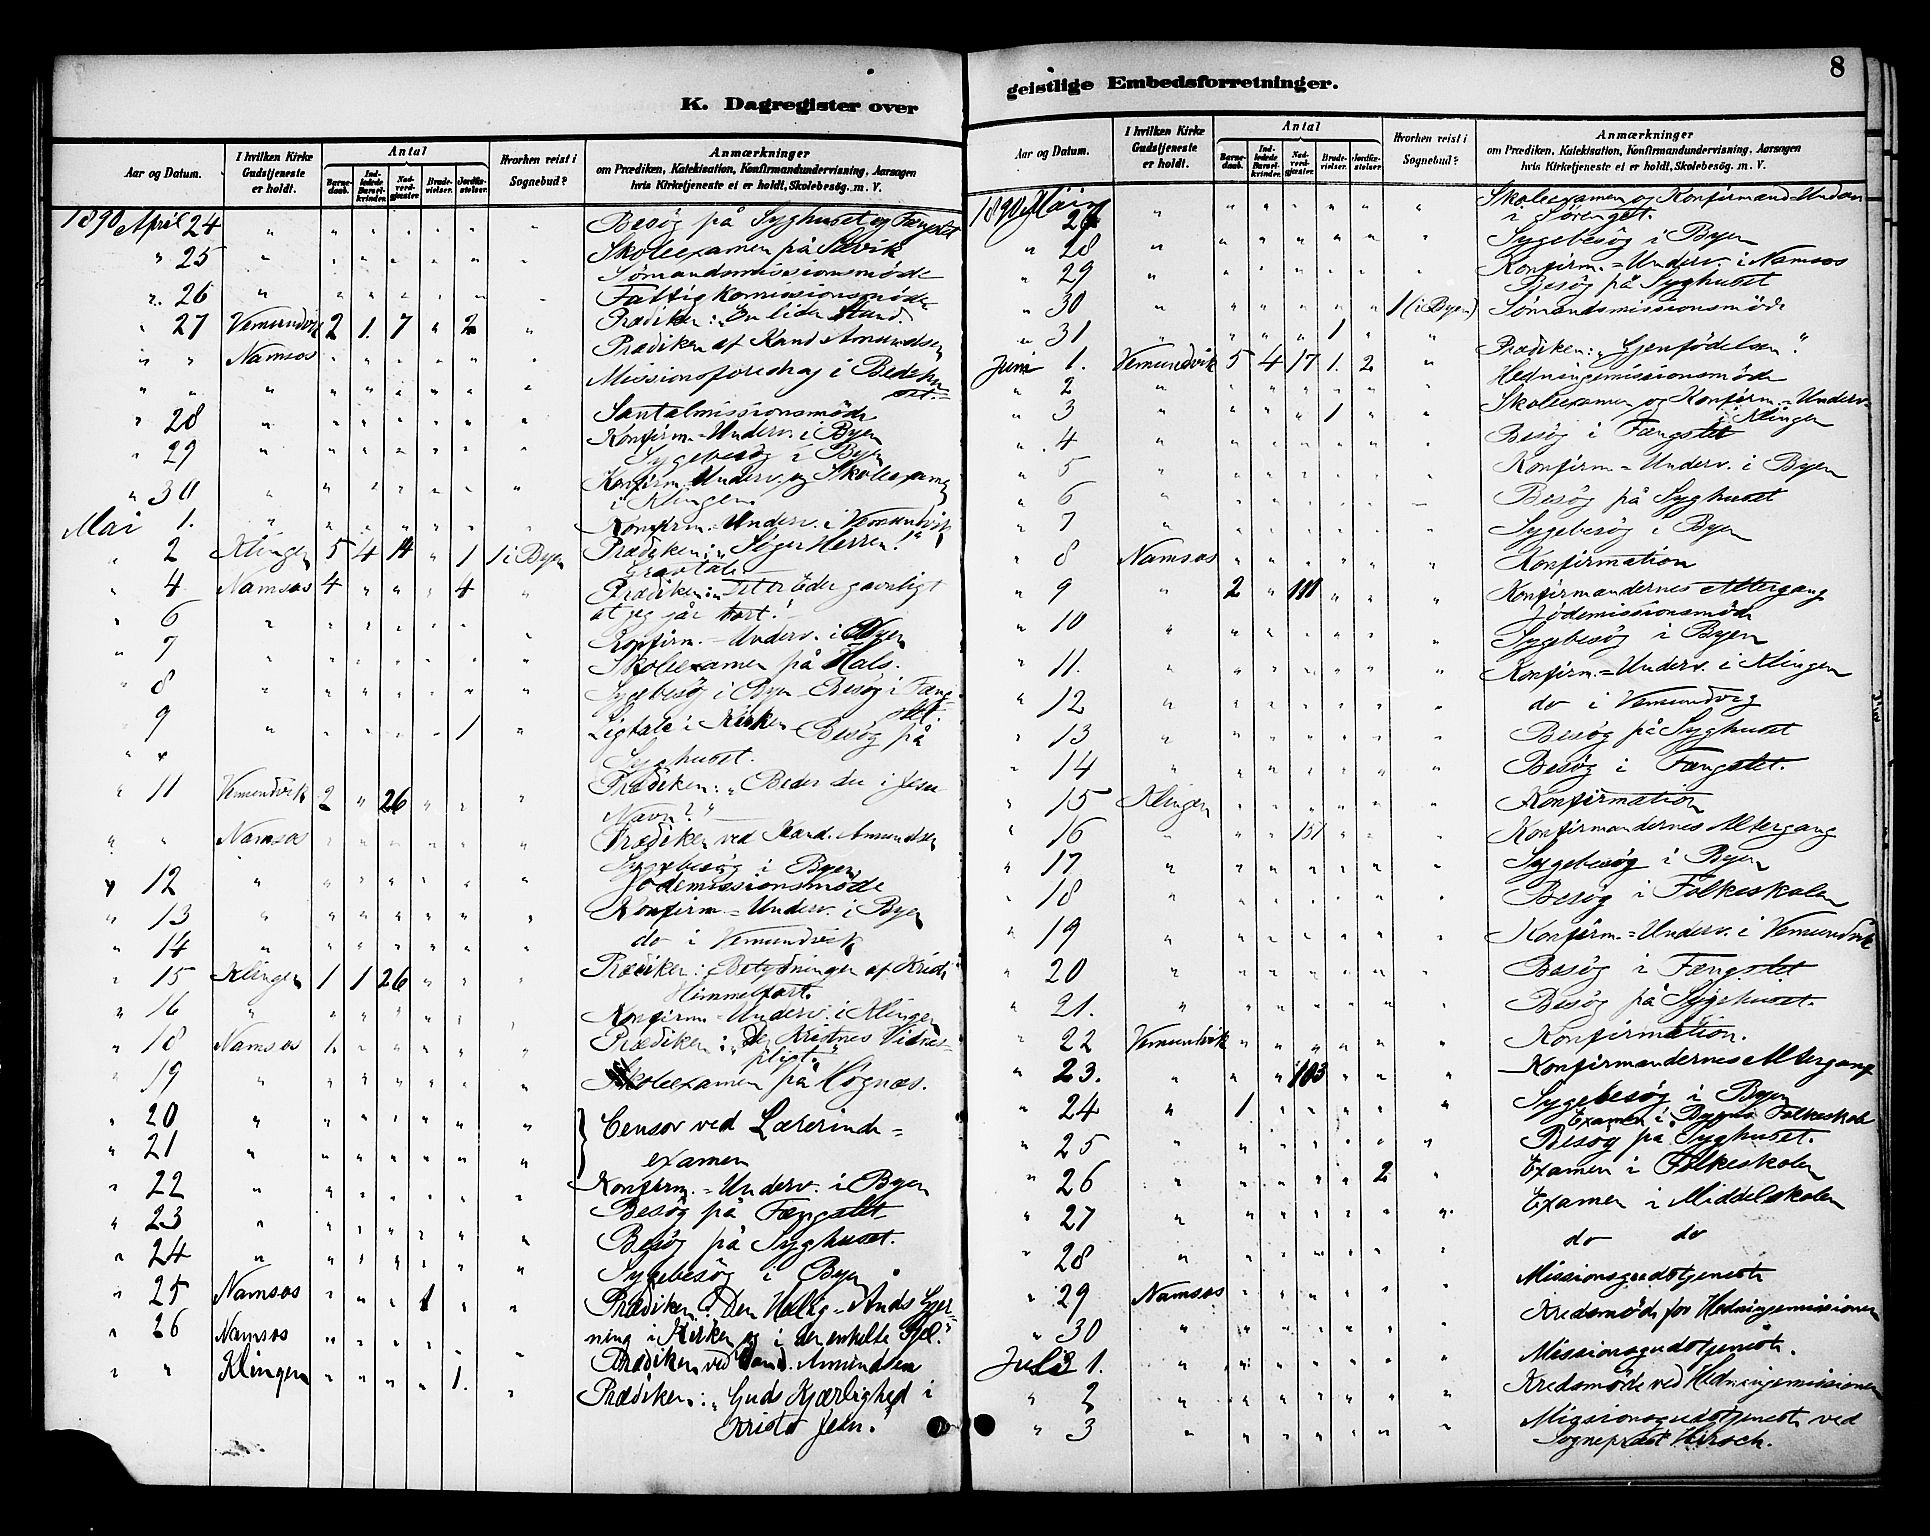 K. Dagregister over
Aar og Datum.
I hvilken Kirke Gudstjeneste er holdt.
Antal
Barne-daab.
Ind-ledede Barsel-kvinder.
Nad-verd-gjæster.
Brude-vielser.
Jordfæ-stelser.
Hvorhen reist i Sognebud?
Anmærkninger
om Prædiken, Katekisation, Konfirmandundervisning, Aarsagen
hvis Kirketjeneste ei er holdt, Skolebesøg. m. V.
1890 April 24 " " " " " " " Besøg på Syghuset og Fængslet
" 25 " " " " " " " Skoleexamen på Selvik
Sømandsmissionsmøde
" 26 " " " " " " " Fattigkomissionsmøde
" 27 Vemundvik 2 1. 7 " 2 " Prædiken: "En liden Stund.
" " Namsos " " " " " " Prædiken af Kand Amundsen
" " " " " " " " " Missionsforedrag i Bedehu
set.
" 28 " " " " " " " Santalmissionsmøde
Konfirm.=Underv. i Byen
" 29 " " " " " " " Sygebesøg i Byen
" 30 " " " " " " " Konfirm. Underv. og Skoleexamen
i Klingen
Mai 1. " " " " " " " Konfirm.=Underv. i Vemundvik
" 2 Klingen 5 4 14 " 1 1 i Byen Prædiken: "Søger Herren!"
Gravtale
" 4 Namsos 4 " " " 4 " Prædiken: "Det er Eder gavnligt
at jeg går bort!
" 6 " " " " " " "
" 7 " " " " " " " Konfirm.=Underv. i Byen
Skoleexamen på Hals.
" 8 " " " " " " " Sygebesøg i Byen Besøg i Fæng-
slet.
" 9 " " " " " 1 " Ligtale i Kirken Besøg på
Syghuset.
" 11 Vemundvik 2 " 26 " " " Prædiken: "Beder du i Jesu
Navn?"
" " Namsos " " " " " " Prædiken ved Kand. Amundsen
Sygebesøg i Byen
" 12 " " " " " " " Jødemissionsmøde
" 13 " " " " " " " Konfirm.=Underv. i Byen
" 14 " " " " " " " do i Vemundvik
" 15 Klingen 1 1 26 " " " Prædiken: Betydningen af Kristi
Himmelfart.
" 16 " " " " " " " Konfirm.=Underv. i Klingen
" 18 Namsos " " " " " Prædiken: "De Kristnes Vidnes-
pligt."
" 19 " " " " " " " Skoleexamen på Høgnæs.
" 20 " " " " " " " Censor ved Lærerinde=
" 21 " " " " " " " examen
" 22 " " " " " " " Konfirm.=Underv. i Byen
" 23 " " " " " " " Besøg på Fængslet
" 24 " " " " " " " Besøg på Syghuset.
Sygebesøg i Byen
" 25 Namsos " " " 1 " " Prædiken: Den Hellig-Ånds Gjer-
ning i Kirken og i den enkelte Sjel."
" 26 Namsos " " " " " " Prædiken ved Cand. Amundsen
" " Klingen " " " " 1. " Prædiken: "Guds Kjærlighed i
Kristo Jesu."
8
geistlige Embedsforretninger.
Aar og Datum.
I hvilken Kirke Gudstjeneste er holdt.
Antal
Barne-daab.
Ind-ledede Barsel-kvinder.
Nad-verd-gjæster.
Brude-vielser.
Jordfæ-stelser.
Hvorhen reist i Sognebud?
Anmærkninger
om Prædiken, Katekisation, Konfirmandundervisning, Aarsagen
hvis Kirketjeneste ei er holdt, Skolebesøg. m. V.
1890 Mai " " " " " " " Skoleexamen og Konfirmand-Underv
i Sørenget.
" 28 " " " " " " " Sygebesøg i Byen
" 29 " " " " " " " Konfirm.=Underv. i Namsos
Besøg på Syghuset
" 30 " " " " " " 1 (i Byen) Sømandsmissionsmøde
" 31 " " " " 1 " "
Juni 1. Vemundvik 5 4 17 1. 2 " Prædiken: "Gjenfødelsen".
" 2 " " " " " " " Hedningemissionsmøde
" 3 " " " " 1 " " Skoleexamen og Konfirm.=Underv.
i Klingen
" 4 " " " " " " " Besøg i Fængslet
" 5 " " " " " " " Konfirm.=Underv. i Byen
" 6 " " " " " " " Besøg på Syghuset
" 7 " " " " " " " Sygebesøg i Byen
" 8 Namsos " " " " " " Konfirmation
" 9 " 2 " 181 " " " Konfirmandernes Altergang
Jødemissionsmøde
" 10 " " " " " " " Sygebesøg i Byen
" 11. " " " " " " " Konfirm.=Underv. i Klingen
" 12 " " " " " " " do i Vemundvig
" 13 " " " " " " " Besøg på Syghuset
" 14 " " " " " " " Besøg i Fængslet.
" 15 Klingen " " " " " " Konfirmation
" 16 " " " 151 " " " Konfirmandernes Altergang
" 17 " " " " " " " Sygebesøg i Byen
" 18 " " " " " " " Besøg i Folkeskolen
" 19 " " " " " " " Konfirm.=Underv. i Vemundvik
" 20 " " " " " " " Besøg i Fængslet
" 21. " " " " " " " Besøg på Sygehuset.
" 22 Vemundvik " " " " " " Konfirmation.
" 23. " " " 103 " " " Konfirmandernes Altergang
" 24 " 1 " " " " " Sygebesøg i Byen
Examen i Byens Folkeskole
" 25 " " " " " " " Besøg på Syghuset.
" 26 " " " " " 2 " Examen i Folkeskolen
" 27 " " " " " " " Examen i Middelskolen
" 28 " " " " " " " do do
" 29 Namsos " " " " " " Missionsgudstjeneste
" 30 " " " " " " " Kredsmøde for Hedningemissionen
Juli 1. " " " " " " " Missionsgudstjeneste.
" 2 " " " " " " " Kredsmøde ved Hedningemissionen
" 3 " " " " " " " Missionsgudstjeneste ved
Sogneprest Hirsch.